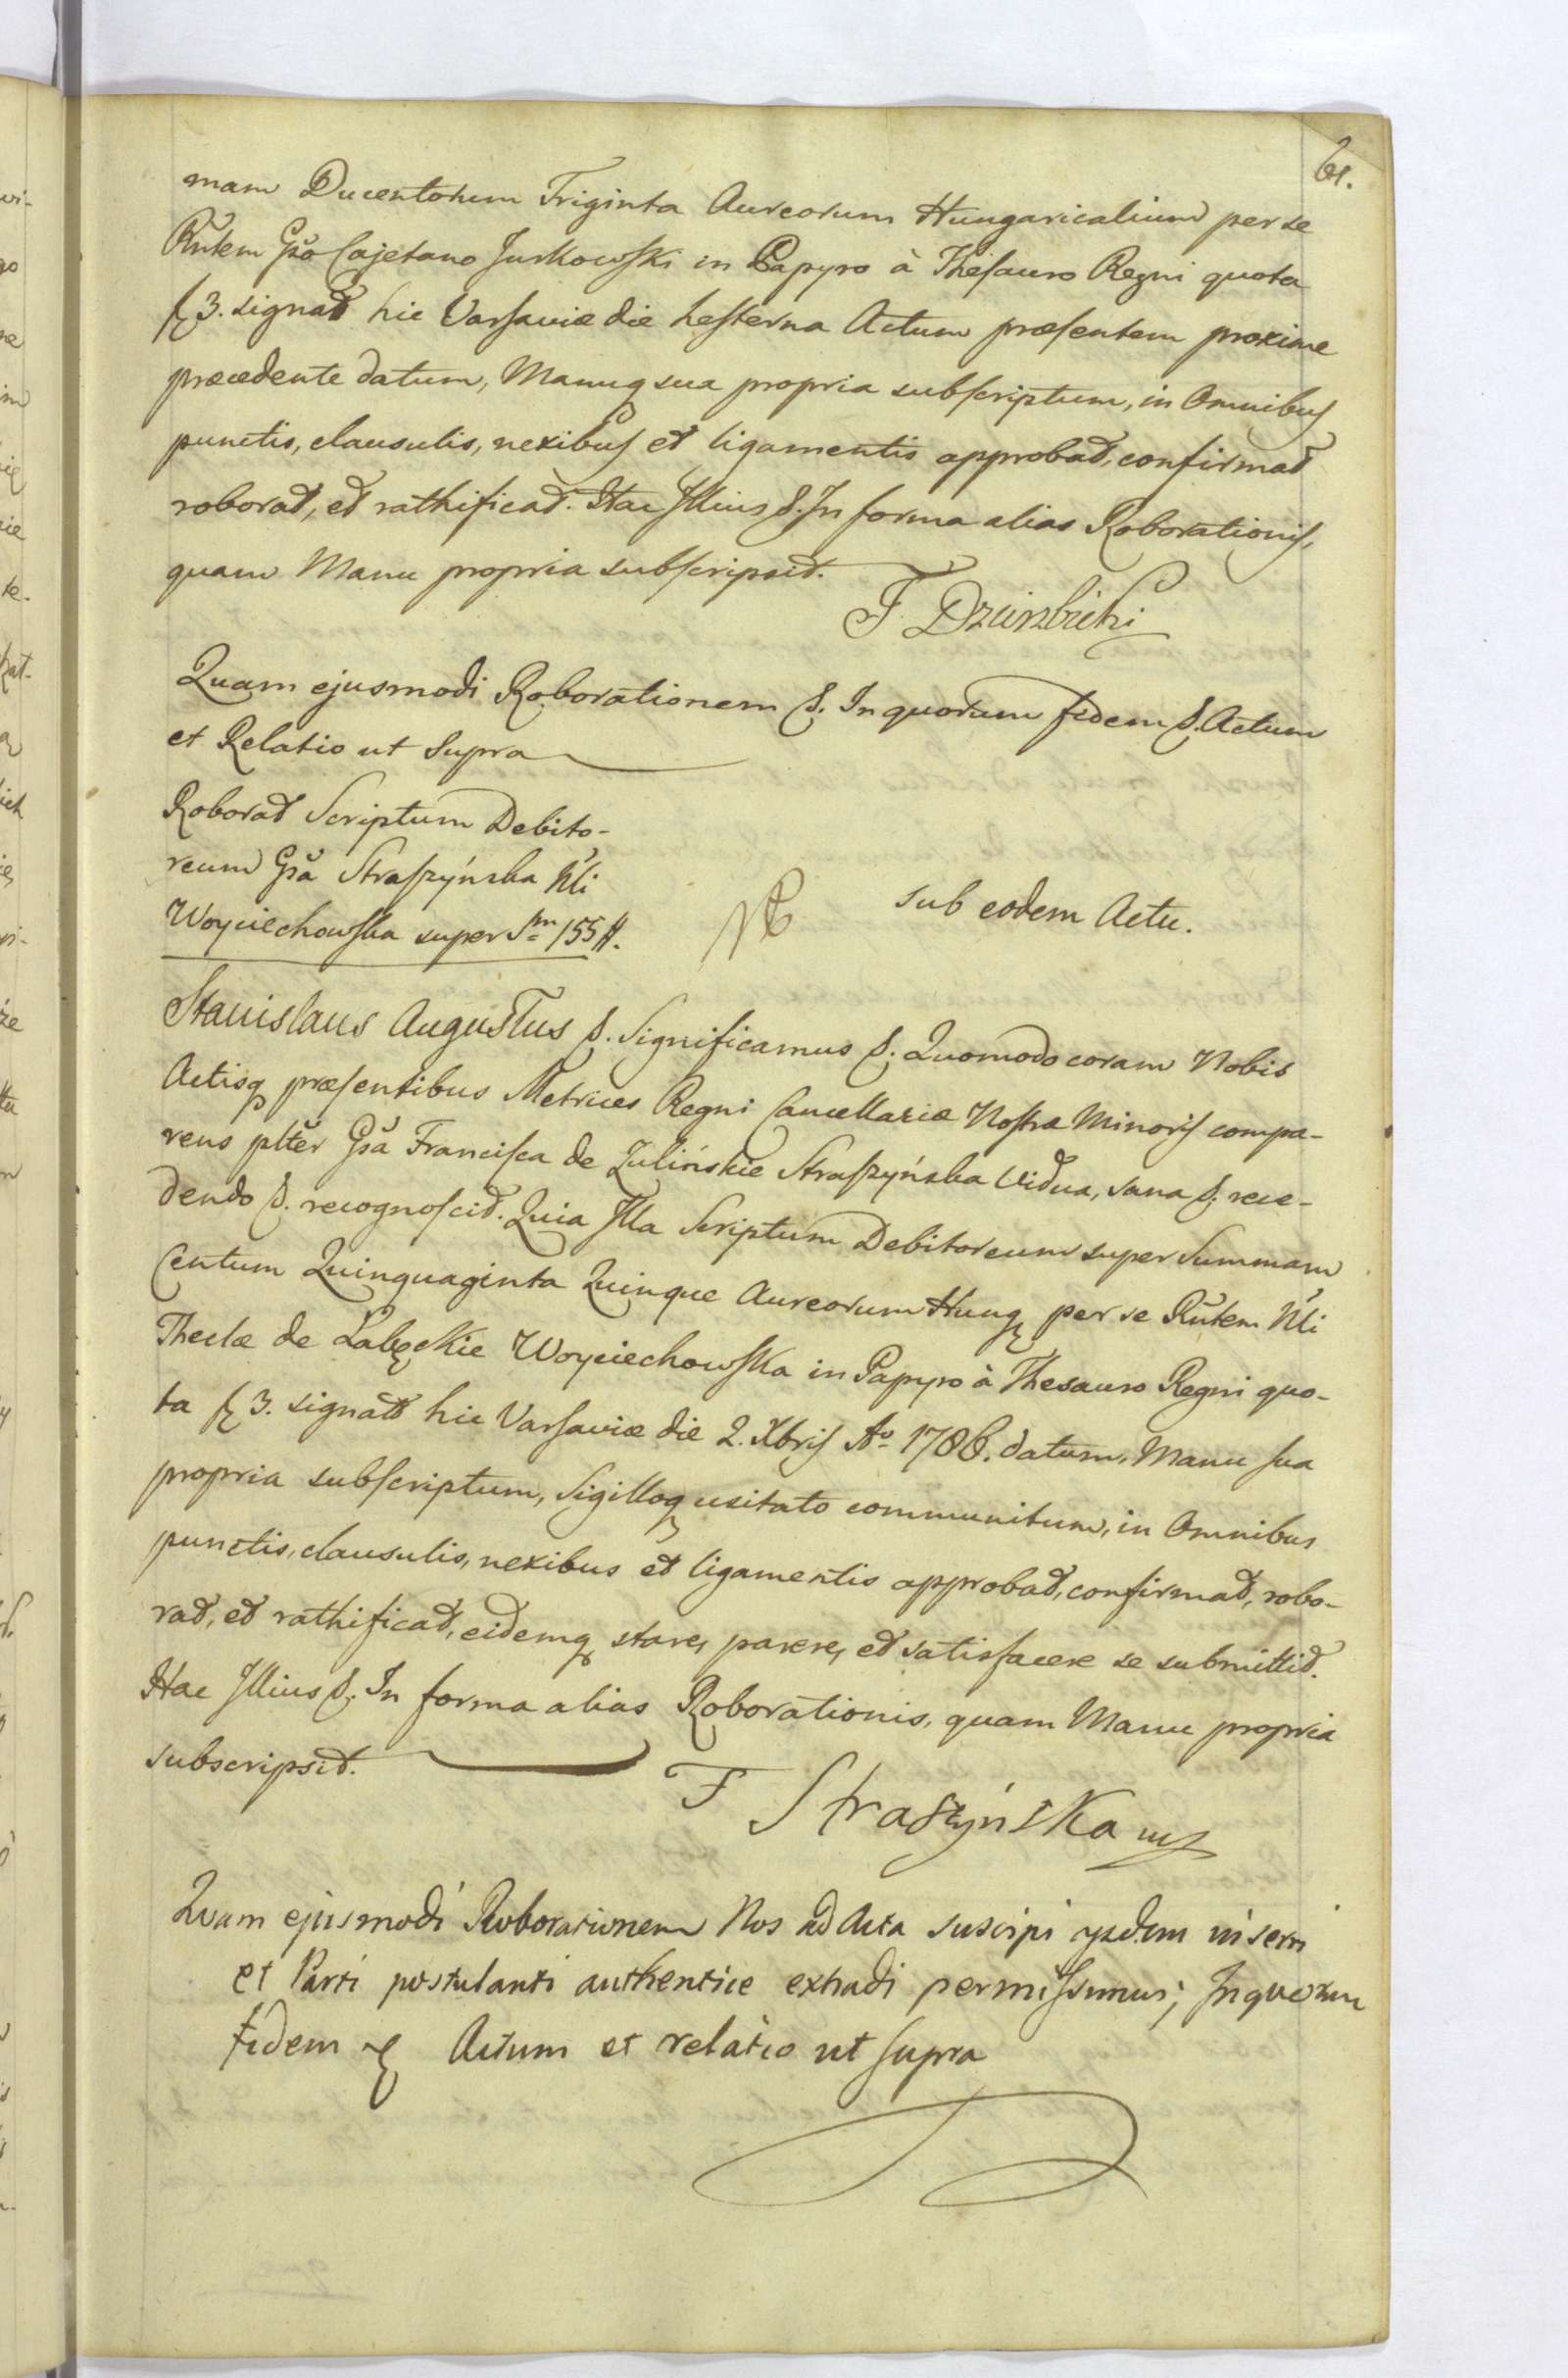 61.
mam Ducentorum Triginta Aureorum Hungaricalium per se
Rñtem Gso Cajetano Jurkowski in Papyro à Thesauro Regni quota
fl 3. signat hic Varsaviæ die hesterna Actum præsentem proxime
præcedente datum, Manuq sua propria subscriptum, in Omnibus
punctis, clausulis, nexibus et ligamentis approbat, confirmat
roborat, et rathificat. Hac Illius &. In forma alias Roborationis,
quam Manu propria subscripsit.
F Dzierzbicki
Quam ejusmodi Roborationem &. In quorum fidem &. Actum
et Relatio ut Supra
Roborat Scriptum Debito-
reum Gsa Straszyńska Nli
Woyciechowska super Sm 155 #.
sub eodem Actu.
Stanislaus Augustus &. Significamus &. Quomodo coram Nobis
Actisq præsentibus Metrices Regni Cancellariæ Nostræ Minoris compa-
rens plter Gsa Francisca de Zulińskie Straszyńska Vidua, sana &. rece-
dendo &. recognoscit. Quia Illa Scriptum Debitoreum super Summam
Centum Quinquaginta Quinque Aureorum Hung per se Rñtem Nli
Theclæ de Łabęckie Woyciechowska in Papyro à Thesauro Regni quo-
ta fl 3. signat hic Varsaviæ die 2. Xbris Ao 1786. datum, Manu sua
propria subscriptum, Sigilloq usitato communitum, in Omnibus
punctis, clausulis, nexibus et ligamentis approbat, confirmat, robo-
rat, et rathificat, eidemq stare, parere, et satisfacere se submittit.
Hac Illius &. In forma alias Roborationis, quam Manu propria
subscripsit.
F Straszyńska
Quam ejusmodi Roborationem Nos ad Acta suscipi ysdem inserri
et Parti postulanti authentice extradi permissimus; In quorum
fidem & Actum et relatio ut supra